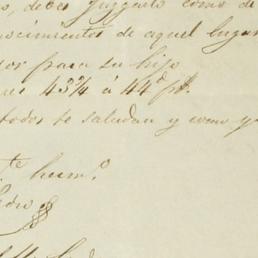 debes juzgarlo como de
nocimientos de aquel lugar
por para su hijo
43¾ á 44 d. pf.
todos te saludan y como y
te herm.o
Pedro